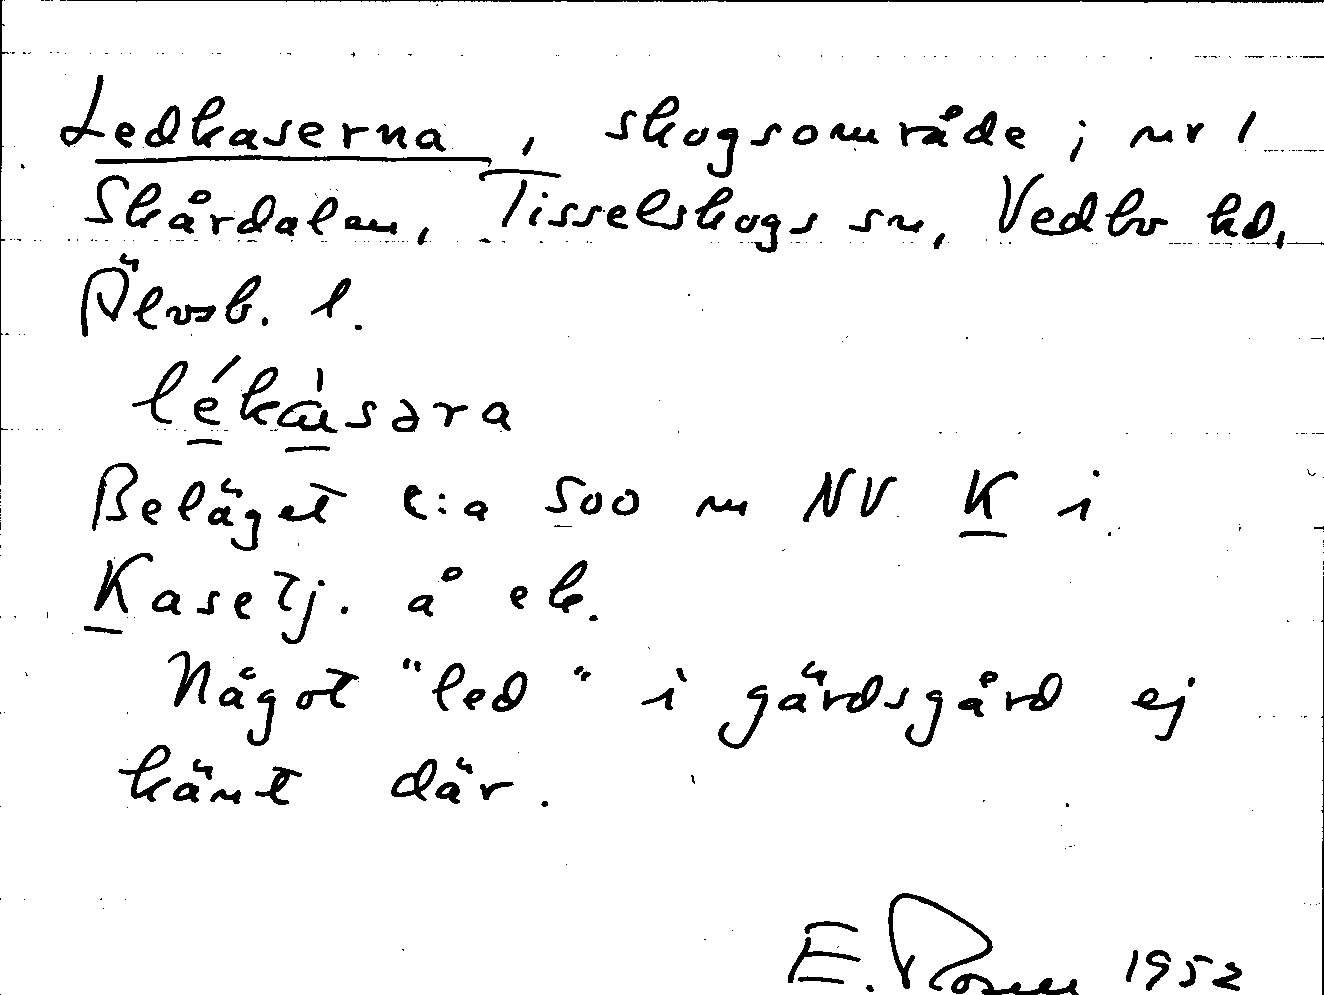 Ledkaserna, skogsområde; nr 1
Skårdalen, Tisselskogs sn, Vedbo hd,
Älvsb. l.
Beläget c:a 500 m NV K i
Kasetj. å ek.
Något "led" i gärdsgård ej
känt där.
E. Rosell 1952